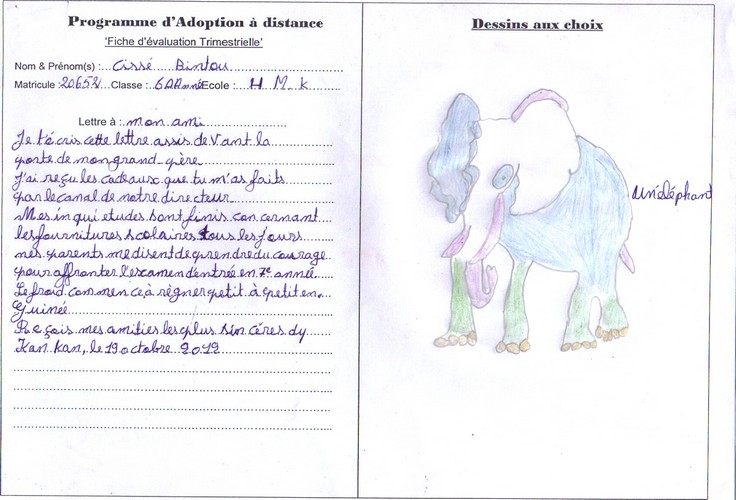 Programme d'Adoption à distance
'Fiche d'évaluation Trimestrielle'
Nom & Prénom(s) : Cissé Bintou
Matricule : 20652 Classe : 6 année Ecole : H M. K
Lettre à : mon ami
Je t'écris cette lettre assis devant la
porte de mon grand-père
J'ai reçu les cadeaux que tu m'as faits
par le canal de notre directeur
Mes in qui etudes sont finis concernant
les fournitures scolaires tous les jours
mes parents me disent de prendre du courage
pour affronter l'examen d'entrée en 7e année.
Le froid commence à règner petit à petit en
Guinée
Reçois mes amities les plus sincéres dy
Kan kan, le 19 octobre 2012
Dessins aux choix
un éléphant